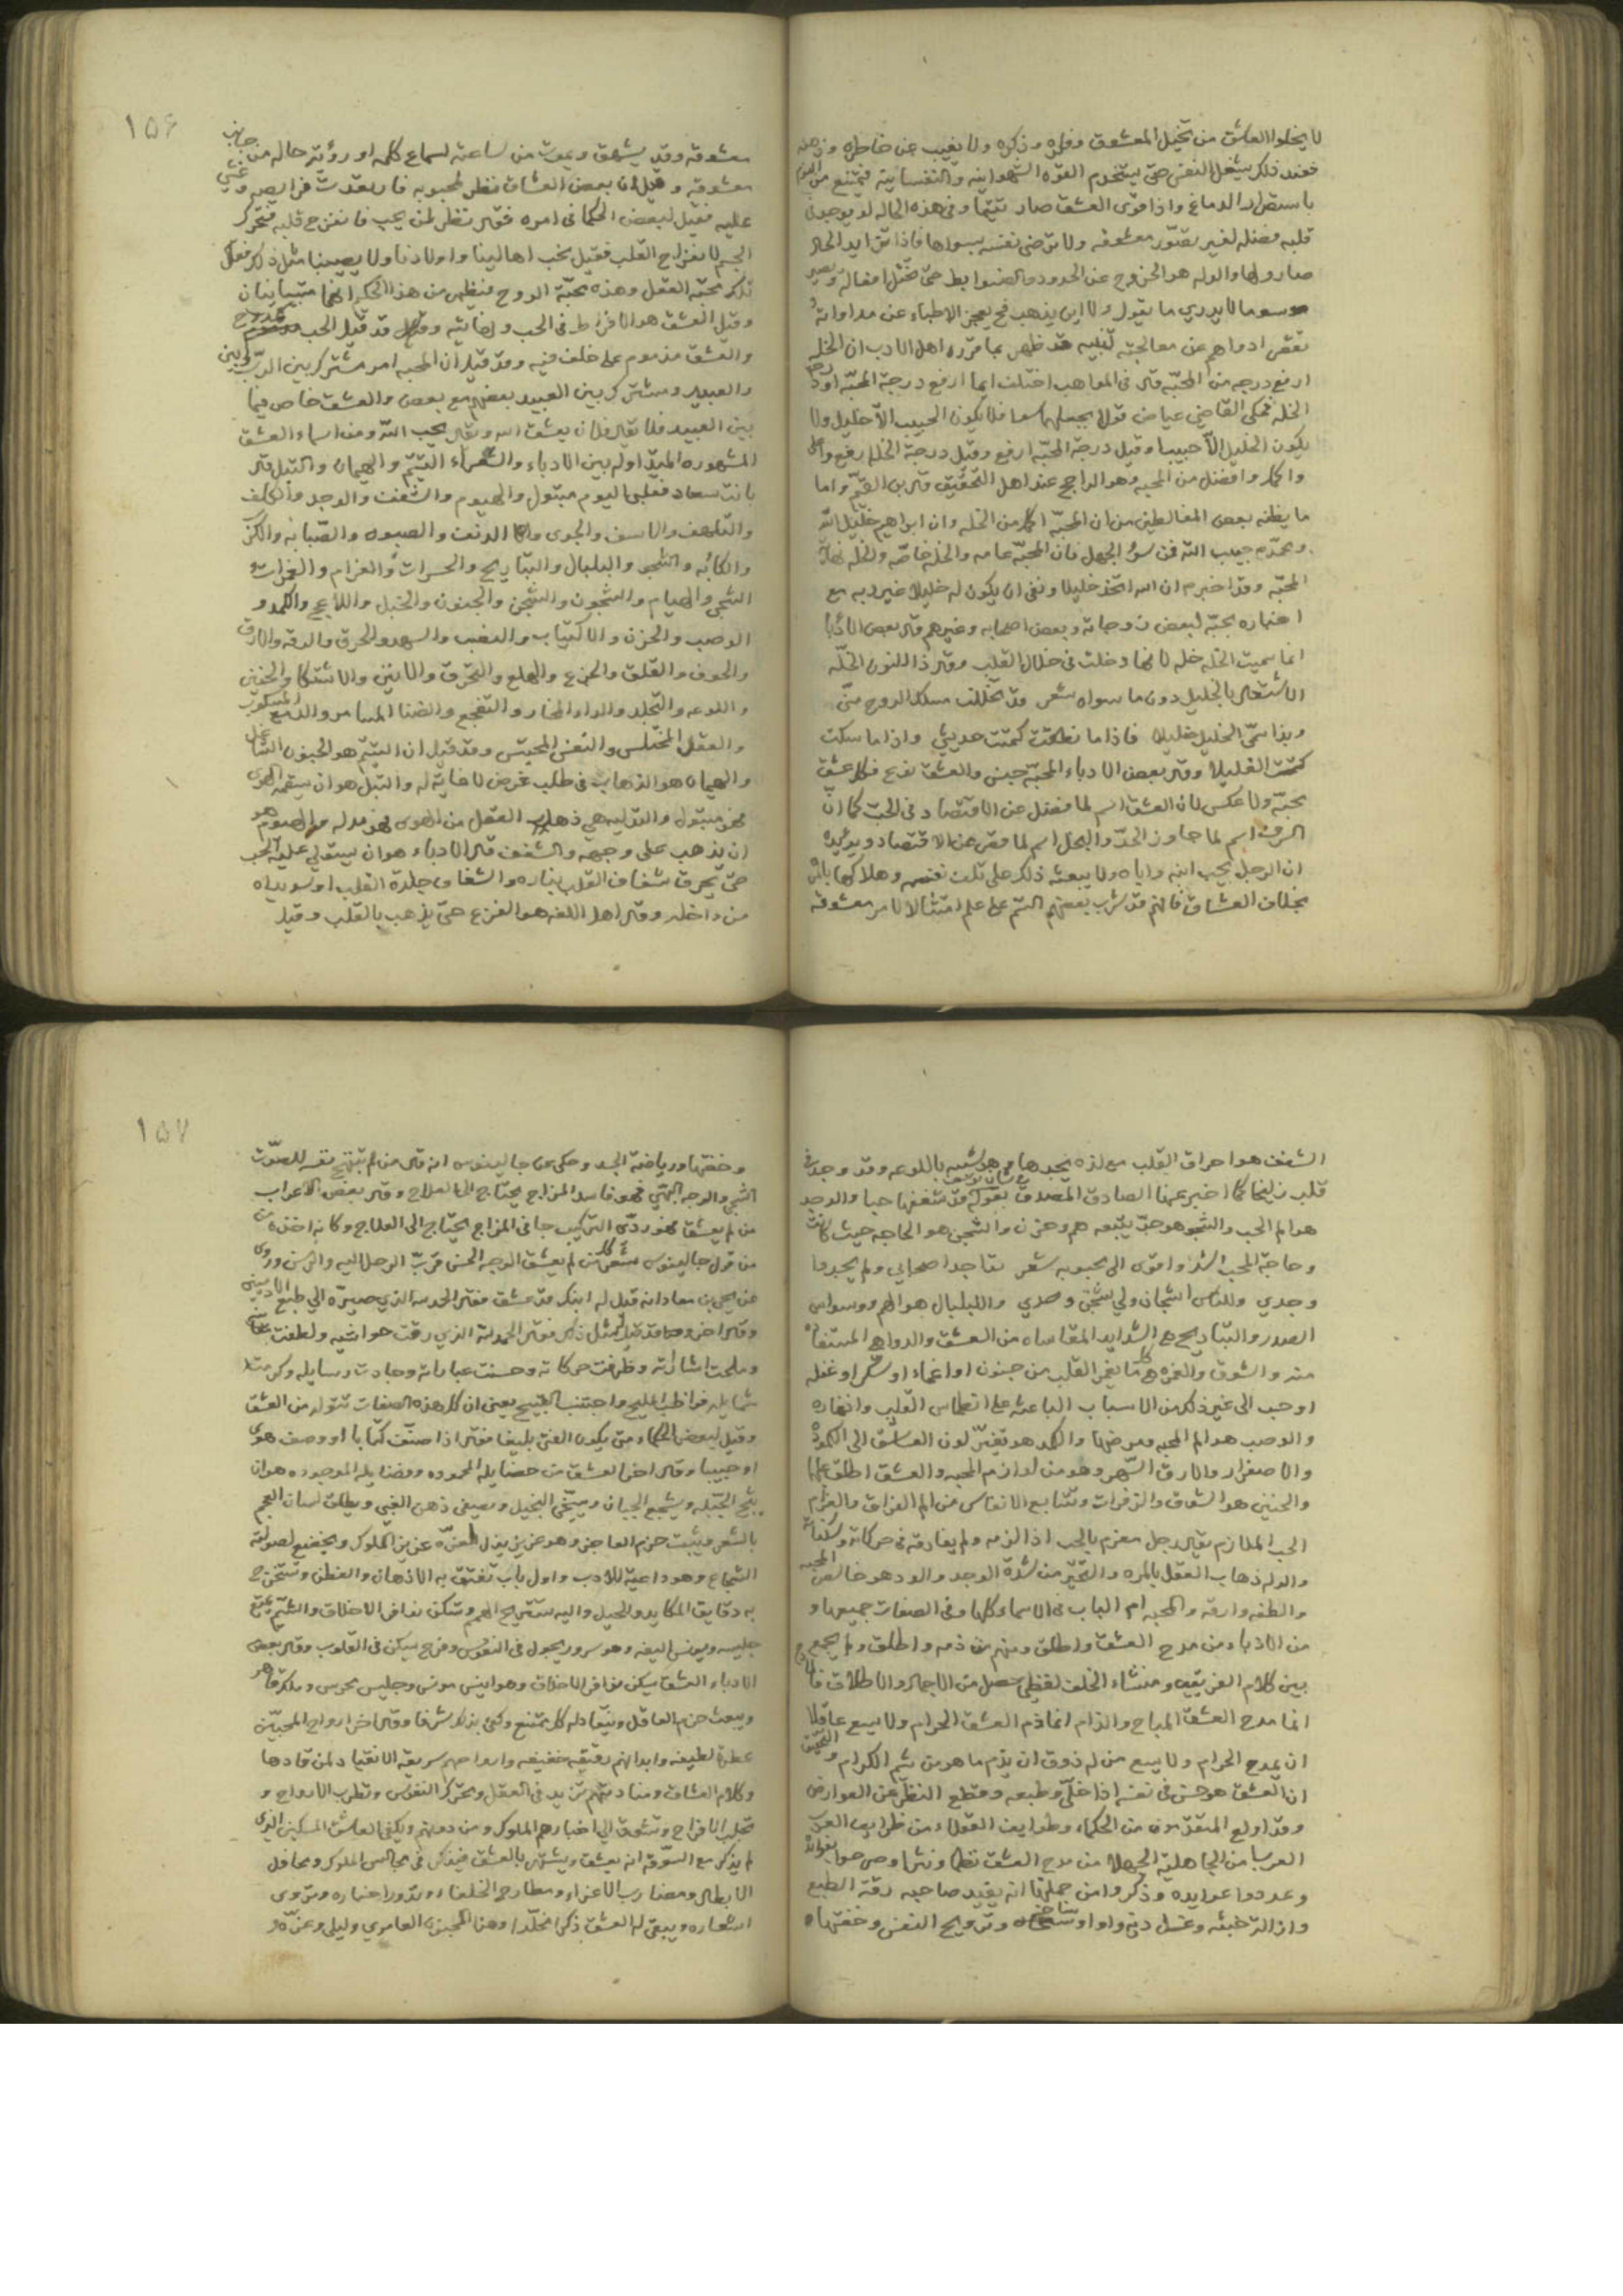 لا يخلوا العاشق من تخيل المعشوق وفكره وذكره ولا يغيب عن خاطره وذهنه
فعند ذلك يشتغل النفس حتى يستخدم القوه الشهوانيه والنفسانية فيمتنع من النوم
باستضرار الدماغ واذا قوى العشق صار تتيما وفي هذه الحاله لا يوجد في
قلبه فضله لغير تصوّر معشوقه ولا ترضى نفسه بسواها فاذا تزايد الحال
صار ولها والوله هو الخروج عن الحدود والضوابط حتى تختل افعاله ويصير
موسوسا لا يدري ما يقول ولا اين يذهب فح يعجز الاطباء عن مداواته و
تقصر ادواهم عن معالجته تنبيه قد ظهر بما قرره اهل الادب ان الخله
ارفع درجه من المحبّه قال في المواهب اختلف ايما ارفع درجة المحبّه او درجة
الخله فحكى القاضي عياض قولا بجعلهما سوا فلا يكون الحبيب الّا خليلا ولا
يكون الخليل الّا حبيبا وقيل درجة المحبّه ارفع وقيل درجة الخله ارفع واعلى
واكمل وافضل من المحبه وهو الراجح عند اهل التحقيق قال بن القيّم واما
ما يظنه بعض الغالطين من ان المحبّه اكمل من الخله وان ابراهيم خليل الله
ومحمّد حبيب الله فمن سوء الجهل فان المحبّه عامه والخله خاصّه والخله نهاية
المحبّه وقد اخبر م ان الله اتخذ خليلا ونفى ان يكون له خليلا غير ربه مع
اخباره بحبّه لبعض زوجاته وبعض اصحابه وغيرهم قال بعض الادبا
انما سميت الخله خله لانها دخلت في خلال القلب وقال ذا النون الخلّه
الاشتغال بالخليل دون ما سواه شعر قد تخللت مسلك الروح منّي
وبذا سمّي الخليل خليلا فاذا ما نطقت كنت حديثي واذا ما سكت
كنت الغليلا وقال بعض الادباء المحبّه جنس والعشق نوع فكل عشق
محبّه ولا عكس لان العشق اسم لما فضل عن الاقتصاد في الحب كما انّ
السرف اسم لما جاوز الحدّ والبخل اسم لما قصر عن الاقتصاد ويؤيده
ان الرجل يحب ابنه واباه ولا يبعثه ذلك على تلف نفسه وهلاكها بالم
بخلاف العشاق فانهم قد شرب بعضهم السّم على علم امتثالا لامر معشوقه
۱۵۶
معشوقه وقد يشهق ويموت من ساعته لسماع كلمه او رؤية حاله من جانب
معشوقه وقيل ان بعض العشاق نظر لمحبوبه فارتعدت فرايصه وغشي
عليه فقيل لبعض الحكما في امره فقال نظر لمن يحب فانفرج قلبه فتحرك
الجسم لانفراج القلب فقيل نحب اهالينا واولادنا ولا يصيبنا مثل ذلك فقال
تلك محبّة العقل وهذه محبّة الروح فيظهر من هذا الحكم انهما متباينان
وقيل العشق هو الافراط في الحب ونهايته وقد قيل الحب ممدوح
والعشق مذموم على خلف فيه وقد قيل ان المحبه امر مشترك بين الربّ وبين
والعبيد ومشترك بين العبيد بعضهم مع بعض والعشق خاص فيما
بين العبيد فلا يقال فلان يعشق الله ويقال يحب اللّه ومن اسماء العشق
المشهوره الميدّاوله بين الادباء والشعراء التيتّم والهيمان والتبل قال
بانت سعاد فقلبي اليوم متبول والهيوم والشغف والوجد والكلف
والتلهف والاسف والجوى والدنف والصبوه والصّبابه والكرب
والكابه والشجو والبلبال والتباريح والحسرات والغرام والغمرات
الشجى والهيام والشجون والشجن والجنون والخبل واللاعج والكمد و
الوصب والحزن والاكتياب والنصب والسهد والحرق والرقه والارق
والخوف والقلق والجزع والهلع والتحرق والانين والاشتكا والحنين
واللوعه والتجلد والداء المخامر والتفجع والضنا المسامر والدمع المسكوب
والعقل المختلس والنفس المحيتس وقد قيل ان التيتّم هو الجنون الشاغل
والهيمان هو الذهاب في طلب غرض لا غاية له والتبل هو ان يسقمه الهوى
فهو متبول والتوليه هي ذهاب العقل من الهوى فهو مدله والهيوم هو
ان يذهب على وجهه والشغف قال الادباء هو ان يستولي عليه الحب
حتى يحرق شغاف القلب بناره والشغاف جلدة القلب او سويداه
من داخله وقال اهل اللغه هو الفزع حتى يذهب بالقلب وقيل
الشغف هو احراق القلب مع لذه يجدها وهو شبيه باللوعه وقد وجد في
قلب زليخا كما اخبر عنها الصادق المصدق بقوله قد شغفها حبا والوجد
هو الم الحب والشجو هو حبّ يتبعه هم وحزن والشجن هو الحاجه حيث كانت
وحاجة المحب اشد واقوى الى محبوبه شعر تواجد اصحابي ولم يجدوا
وجدي وللناس اشجان ولي شجن وحدي والبلبال هو الهم ووسواس
الصدر والتباريح هي الشدايد المقاساه من العشق والدواهي المستفاه
منه والشوق والغمره هي ما يغمر القلب من جنون او اغماء او سكر او غفله
او حب الى غير ذلك من الاسباب الباعثه على انطماس القلب وانغماره
والوصب هو الم المحبه ومرضها والكمد هو تغيّر لون العاشق الى الكموده
والاصفرار والارق السّهر وهو من لوازم المحبه والعشق اطلق عليها
والحنين هو الشوق والزفرات وتتابع الانفاس من الم الفراق والغرام
الحب الملازم يقال رجل مغرم بالحب اذا الزمه ولم يفارقه في حركاته وسكناته
والوله ذهاب العقل بالمره والتحيّر من شدّة الوجد والود هو خالص المحبه
والطفه وارقه والمحبه ام الباب في الاسماء كلها وفي الصفات جميعها و
من الادباء من مدح العشق واطلق ومنهم من ذمه واطلق ولم يجمع
بين كلام الفريقين ومنشاء الخلف لفظي حصل من الاجمال والاطلاق
انما مدح العشق المباح والذام انما ذم العشق الحرام ولا يسع عاقلا
ان يمدح الحرام ولا يسع من له ذوق ان يذم ما هو من شيم الكرام والتحقيق
ان العشق هو حسن في نفسه اذا خلّي وطبعه وقطع النظر عن العوارض
وقد اولع المتقدّمون من الحكماء وطوايف العقلاء من ظرايف العرب
العربا من الجاهليّه الجهلا من مدح العشق نظما ونثرا وصرحوا بفوائده
وعددوا عوايده وذكروا من جملتها انه يفيد صاحبه رقة الطبع
وازالة خبثه وغسل درنه واوساخه وترويح النفس وخفتها
۱۵۷
وخفتها ورياضة الجسد وحكي عن جالينوس انه قال من لم تبتهج نفسه للصوّت
الشجي والوجه البهي فهو فاسد المزاج يحتاج الى العلاج وقال بعض الاعراب
من لم يعشق فهو ردّى التركيب جافي المزاج يحتاج الى العلاج وكانه اخذه من
من قول جالينوس من لم يعشق الوجه الحسن قرّب الرحل اليه والرسن وروى
عن يحيى بن معاذ انه قيل له ابنك قد عشق فقال الحمد لله الذي صيّره الى طبع الادميين
وقال اخر وقد قيل له مثل ذلك فقال الحمد لله الذي رقت حواشيه ولطفت معانيه
وملحت اشاراته وظرفت حركاته وحسنت عباراته وجادت رسايله وكرمت
شمايله فواظب المليح واجتنب القبيح يعني ان كل هذه الصفات تتولد من العشق
وقيل لبعض الحكماء متى يكون الفتى بليغا فقال اذا صنّف كتابا او وصف هوى
او حبيبا وقال اخر العشق من خصايله المحموده وفضايله الموجوده هو ان
يشجع الجبان ويسخّي البخيل ويصفي ذهن الغبي ويطلق لسان العجم
بالشعر ويثبت حزم العاجز وهو عزيز يذل له عزّ عزيز الملوك ويخضع لصولته
الشجاع وهو داعية للادب واول باب تفتق به الاذهان والفطن وتستخرج
به دقايق المكايد والحيل واليه تستريح الهمم وتسكن نوافر الاخلاق والشيم يمتع
جليسه ويونس اليفه وهو سرور يجول في النفوس وفرح يسكن في القلوب وقال بعض
الادباء العشق يسكن نوافر الاخلاق وهو انيس مونس وجليس محرس وملك قاهر
ويبعث حزم العاقل وينقاد له كل ممتنع وكفى بذلك شرفا وقال اخر ارواح المحبيّن
عطره لطيفه وابدانهم رقيقه خفيفه وارواحهم سريعة الانقياد لمن قادها
وكلام العشاق ومنادمتهم تزيد في العقل وتحرك النفوس وتطرب الارواح و
تجلب الافراح وتتشوق الى اخبارهم الملوك ومن دونهم ويكفي العاشق المسكين الذي
لم يذكر مع السوقه انه يعشق ويشتهر بالعشق فيذكر في مجالس الملوك ومحافل
الابطال ومضارب الاعزاء ومطارح الخلفاء وتدور اخباره وتروى
اشعاره ويبقى له العشق ذكرا مخلّدا وهذا المجنون العامري وليلى وعزّه و